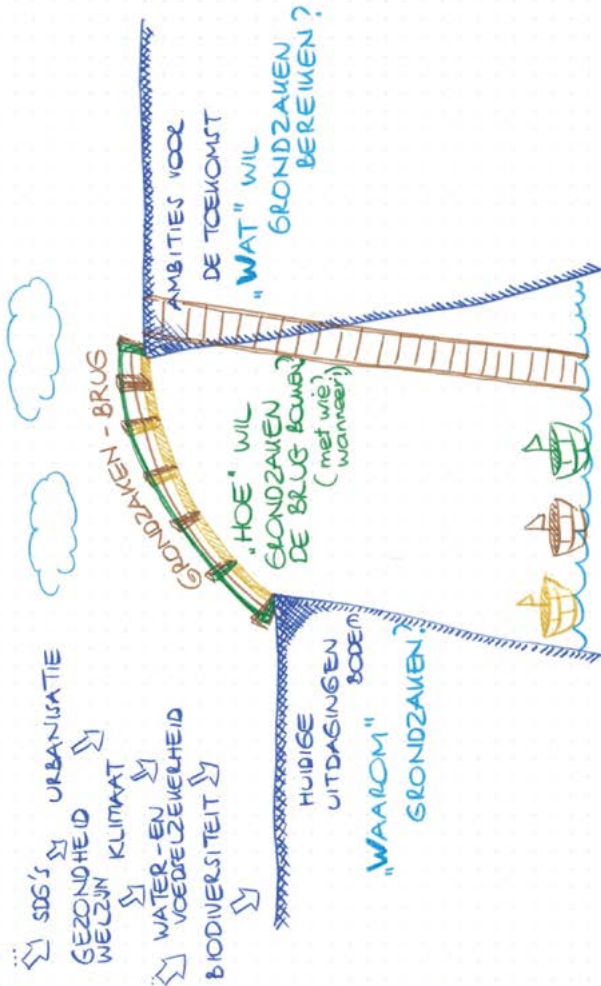 SDG'S
URBANISATIE
GEZONDHEID
WELZIJN
KLIMAAT
WATER-EN
VOEDSELZEKERHEID
BIODIVERSITEIT
HUIDIGE
UITDAGINGEN
BODEM
"WAAROM"
GRONDZAKEN?
GRONDZAKEN-BRUG
"HOE" WIL
GRONDZAKEN
DE BRUG BOUWEN?
(met wie?
wanneer?)
AMBITIES VOOR
DE TOEKOMST
"WAT" WIL
GRONDZAKEN
BEREIKEN?